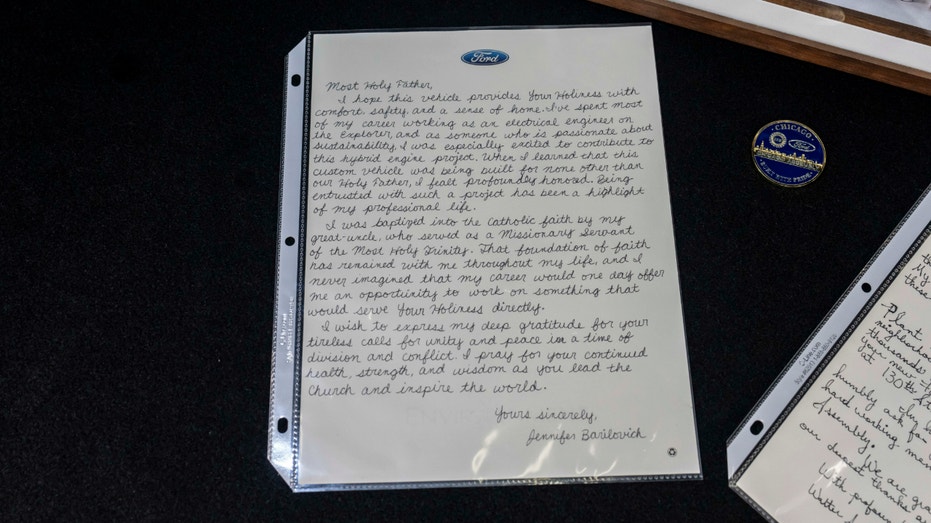 Ford
Most Holy Father,
I hope this vehicle provides Your Holiness with
comfort, safety, and a sense of home. I've spent most
of my career working as an electrical engineer on
the Explorer, and as someone who is passionate about
sustainability, I was especially excited to contribute to
this hybrid engine project. When I learned that this
custom vehicle was being built for none other than
our Holy Father, I fealt profoundly honored. Being
entrusted with such a project has been a highlight
of my professional life.
I was baptized into the Catholic faith by my
great-uncle, who served as a Missionary Servant
of the Most Holy Trinity. That foundation of faith
has remained with me throughout my life, and I
never imagined that my career would one day offer
me an opportunity to work on something that
would serve Your Holiness directly.
I wish to express my deep gratitude for your
tireless calls for unity and peace in a time of
division and conflict. I pray for your continued
health, strength, and wisdom as you lead the
Church and inspire the world.
Yours sincerely,
Jennifer Barilovich
CHICAGO
Ford
PRIDE
My
these
Plant,
neighborhood
thousands
your new
at 130th
humbly ask for
hard working
Assembly.
We are
our deepest thanks
With
Walter